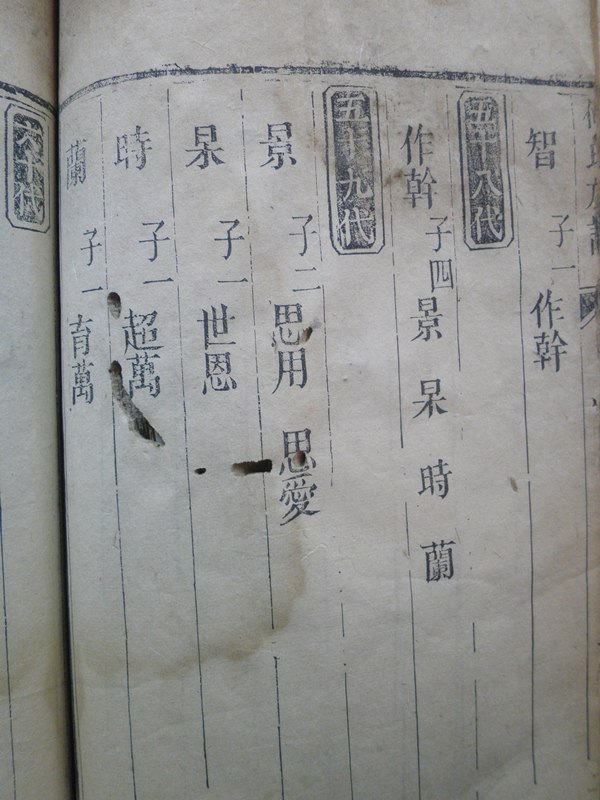 智 子一 作幹
五十八代
作幹 子四 景 杲 時 蘭
五十九代
景 子二 思用 思愛
杲 子一 世恩
時 子一 超萬
蘭 子一 育萬
六十代